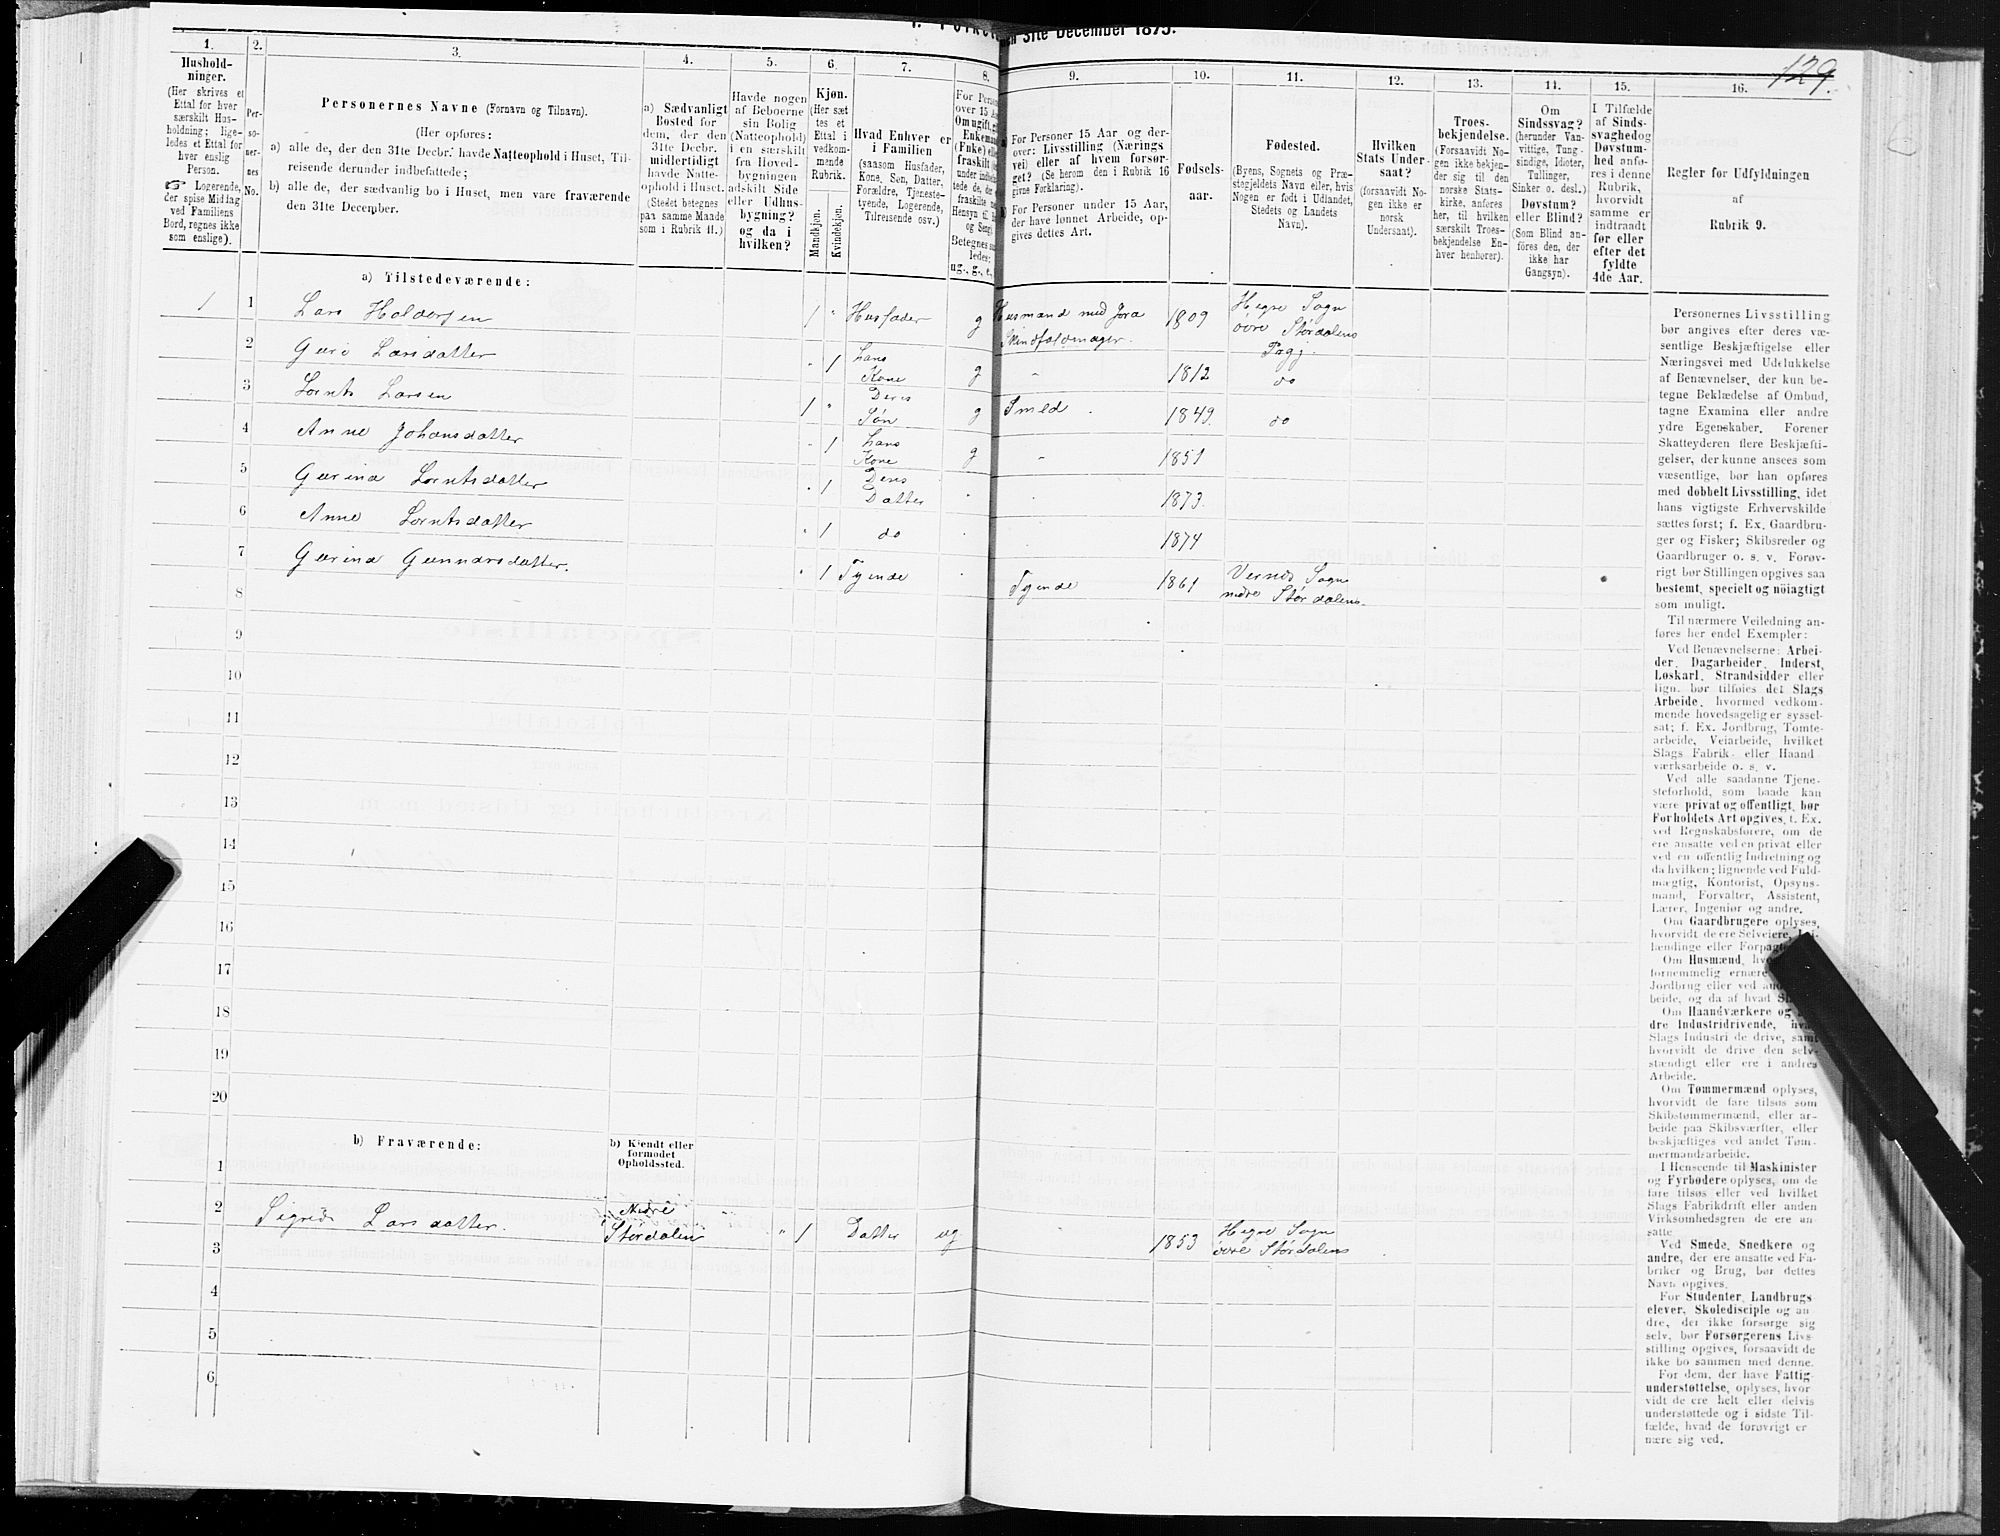 31te December 1875.
129.
1.
2.
3.
4.
5.
6.
7.
8.
9.
10.
11.
12.
13.
14.
15.
16.
Hushold-
ninger.
(Her skrives et
Ettal for hver
særskilt Hus-
holdning; lige-
ledes et Ettal for
hver enslig
Person.
☞ Logerende,
der spise Middag
ved Familiens
Bord, regnes ikke
som enslige).
Per-
so-
ner-
nes
No.
Personernes Navne (Fornavn og Tilnavn).
(Her opføres:
a) alle de, der den 31te Decbr. havde Natteophold i Huset, Til-
reisende derunder indbefattede;
b) alle de, der sædvanlig bo i Huset, men vare fraværende
den 31te December.
a) Sædvanligt
Bosted for
dem, der den
31te Decbr.
midlertidigt
havde Natte-
ophold i Huset.
(Stedet betegnes
paa samme Maade
som i Rubrik 11.)
Havde nogen
af Beboerne
sin Bolig
(Natteophold)
i en særskilt
fra Hoved-
bygningen
adskilt Side
eller Udhus-
bygning?
og da i
hvilken?
Kjøn.
(Her sæt
tes et
Ettal i
vedkom-
mende
Rubrik.
Mandkjøn.
Kvindekjøn.
Hvad Enhver er
i Familien
(saasom Husfader,
Kone, Søn, Datter,
Forældre, Tjeneste-
tyende, Logerende,
Tilreisende osv.)
For Perso
over 15 A
Om ugift, g
Enkemand
(Enke) elle
fraskilt
ug., g., e.,
For Personer 15 Aar og der-
over: Livsstilling (Nærings
vei) eller af hvem forsør-
get? (Se herom den i Rubrik 16
givne Forklaring).
For Personer under 15 Aar,
der have lønnet Arbeide, op-
gives dettes Art.
Fødsels-
aar.
Fødested.
(Byens, Sognets og Præ-
stegjeldets Navn eller, hvis
Nogen er født i Udlandet,
Stedets og Landets
Navn).
Hvilken
Stats Under-
saat?
(forsaavidt No-
gen ikke er
norsk
Undersaat).
Troes-
bekjendelse.
(Forsaavidt No-
gen ikke bekjen-
der sig til den
norske Stats-
kirke, anføres
her, til hvilken
særskilt Troes-
bekjendelse En-
hver henhører).
Om
Sindssvag?
(herunder Van-
vittige, Tung-
sindige, Idioter,
Tullinger,
Sinker o. desl.)
Døvstum?
eller Blind?
(Som Blind an-
føres den, der
ikke har
Gangsyn).
I Tilfælde
af Sinds-
svaghed og
Døvstum-
hed anfø-
res i denne
Rubrik,
hvorvidt
samme er
indtraadt
før eller
efter det
fyldte
4de Aar.
Regler for Udfyldningen
af
Rubrik 9.
a) Tilstedeværende:
1 1 Lars Haldorsen 1 " Husfader g Husmand med Jord Skindfeldmager. 1809 Hegre Sogn øvre Størdalens Prgj.
2 Guro Larsdatter " 1 hans Kone g " 1812 do
3 Lornts Larsen 1 " Deres Søn g Smed. 1849. do
4 Anne Johansdatter " 1 hans Kone g " 1851
5 Gurina Lorntsdatter " 1 Deres Datter " 1873.
6 Anne Lorntsdatter " 1 do 1874
7 Gurina Gunnarsdatter. " 1 Tyende Tyende 1861 Vernes Sogn nedre Størdalens.
8
9
10
11
12
13
14
15
16
17
18
19
20
b) Fraværende:
b) Kjendt eller
formodet
Opholdssted.
1
2 Sigrid Larsdatter. Nedre Størdalen " 1 Datter ug. 1853 Hegre Sogn øvre Størdalens
3
4
5
6
Personernes Livsstilling
bør angives efter deres væ-
sentlige Beskjæftigelse eller
Næringsvei med Udelukkelse
af Benævnelser, der kun be-
tegne Beklædelse af Ombud,
tagne Examina eller andre
ydre Egenskaber. Forener
Skatteyderen flere Beskjæfti-
gelser, der kunne ansees som
væsentlige, bør han opføres
med dobbelt Livsstilling, idet
hans vigtigste Erhvervskilde
sættes først; f. Ex. Gaardbru-
ger og Fisker; Skibsreder og
Gaardbruger o. s. v. Forøv-
rigt bør Stillingen opgives saa
bestemt, specielt og nöiagtigt
som muligt.
Til nærmere Veiledning an-
føres her endel Exempler:
Ved Benævnelserne: Arbei-
der, Dagarbeider, Inderst,
Løskarl, Strandsidder eller
lign. bør tilføies det Slags
Arbeide, hvormed vedkom-
mende hovedsagelig er syssel-
sat; f. Ex. Jordbrug, Tomte-
arbeide, Veiarbeide, hvilket
Slags Fabrik- eller Haand
værksarbeide o. s. v.
Ved alle saadanne Tjene-
steforhold, som baade kan
være privat og offentligt, bør
Forholdets Art opgives, t. Ex.
ved Regnskabsførere, om de
ere ansatte ved en privat eller
ved en offentlig Indretning og
da hvilken; lignende ved Fuld-
mægtig, Kontorist, Opsyns-
mand, Forvalter, Assistent,
Lærer, Ingeniør og andre.
Om Gaardbrugere oplyses,
hvorvidt de ere Selveiere, Lei-
lændinge eller Forpagtere
Om Husmænd,
fornemmelig ernære
Jordbrug eller ved
beide, og da af hvad
Om Haandværkere og
dre Industridrivende,
Slags Industri de drive, samt
hvorvidt de drive den selv-
stændigt eller ere i andres
Arbeide.
Om Tømmermænd oplyses,
hvorvidt de fare tilsøs som
Skibstømmermænd, eller ar-
beide paa Skibsværfter, eller
beskjæftiges ved andet Tøm-
mermandsarbeide.
I Henseende til Maskinister
og Fyrbødere oplyses, om de
fare tilsøs eller ved hvilket
Slags Fabrikdrift eller anden
Virksomhedsgren de ere an-
satte
Ved Smede, Snedkere og
andre, der ere ansatte ved Fa-
briker og Brug, bør dettes
Navn opgives.
For Studenter, Landbrugs
elever, Skoledisciple og an
dre, der ikke forsørge sig
selv, bør Forsørgerens Livs-
stilling opgives, forsaavidt de
ikke bo sammen med denne.
For dem, der have Fattig-
understøttelse, oplyses, hvor
vidt de ere helt eller delvis
understøttede og i sidste Til-
fælde, hvad de forøvrigt er
nære sig ved.